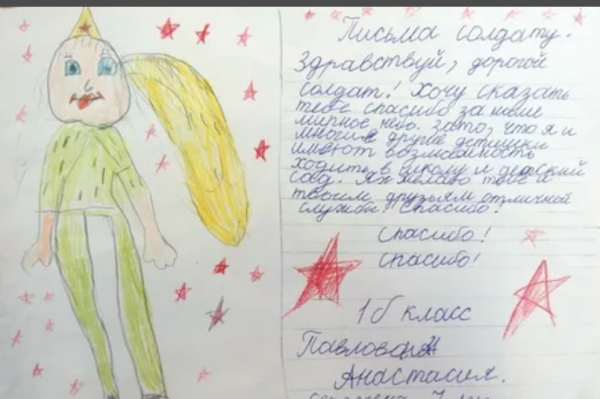 Письма солдату.
Здравствуй, дорогой
солдат! Хочу сказать
тебе спасибо за наше
мирное небо. За то, что я и
многие другие детишки
имеют возможность
ходить в школу и детский
сад. Я желаю тебе и
твоим друзьям отличной
службы! Спасибо!
Спасибо!
Спасибо!
1б класс
Павлова
Анастасия.